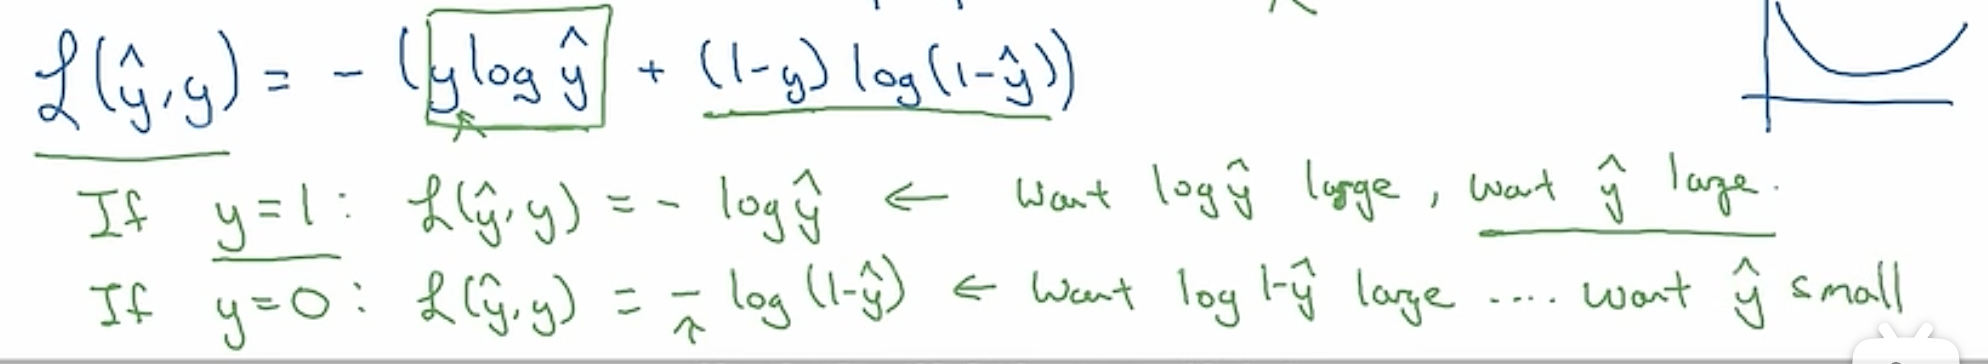 ℒ(ŷ,y) = - (y log ŷ + (1-y) log(1-ŷ))
If y=1: ℒ(ŷ,y) = - log ŷ ← Want log ŷ large, want ŷ large.
If y=0: ℒ(ŷ,y) = - log (1-ŷ) ← Want log 1-ŷ large .... want ŷ small